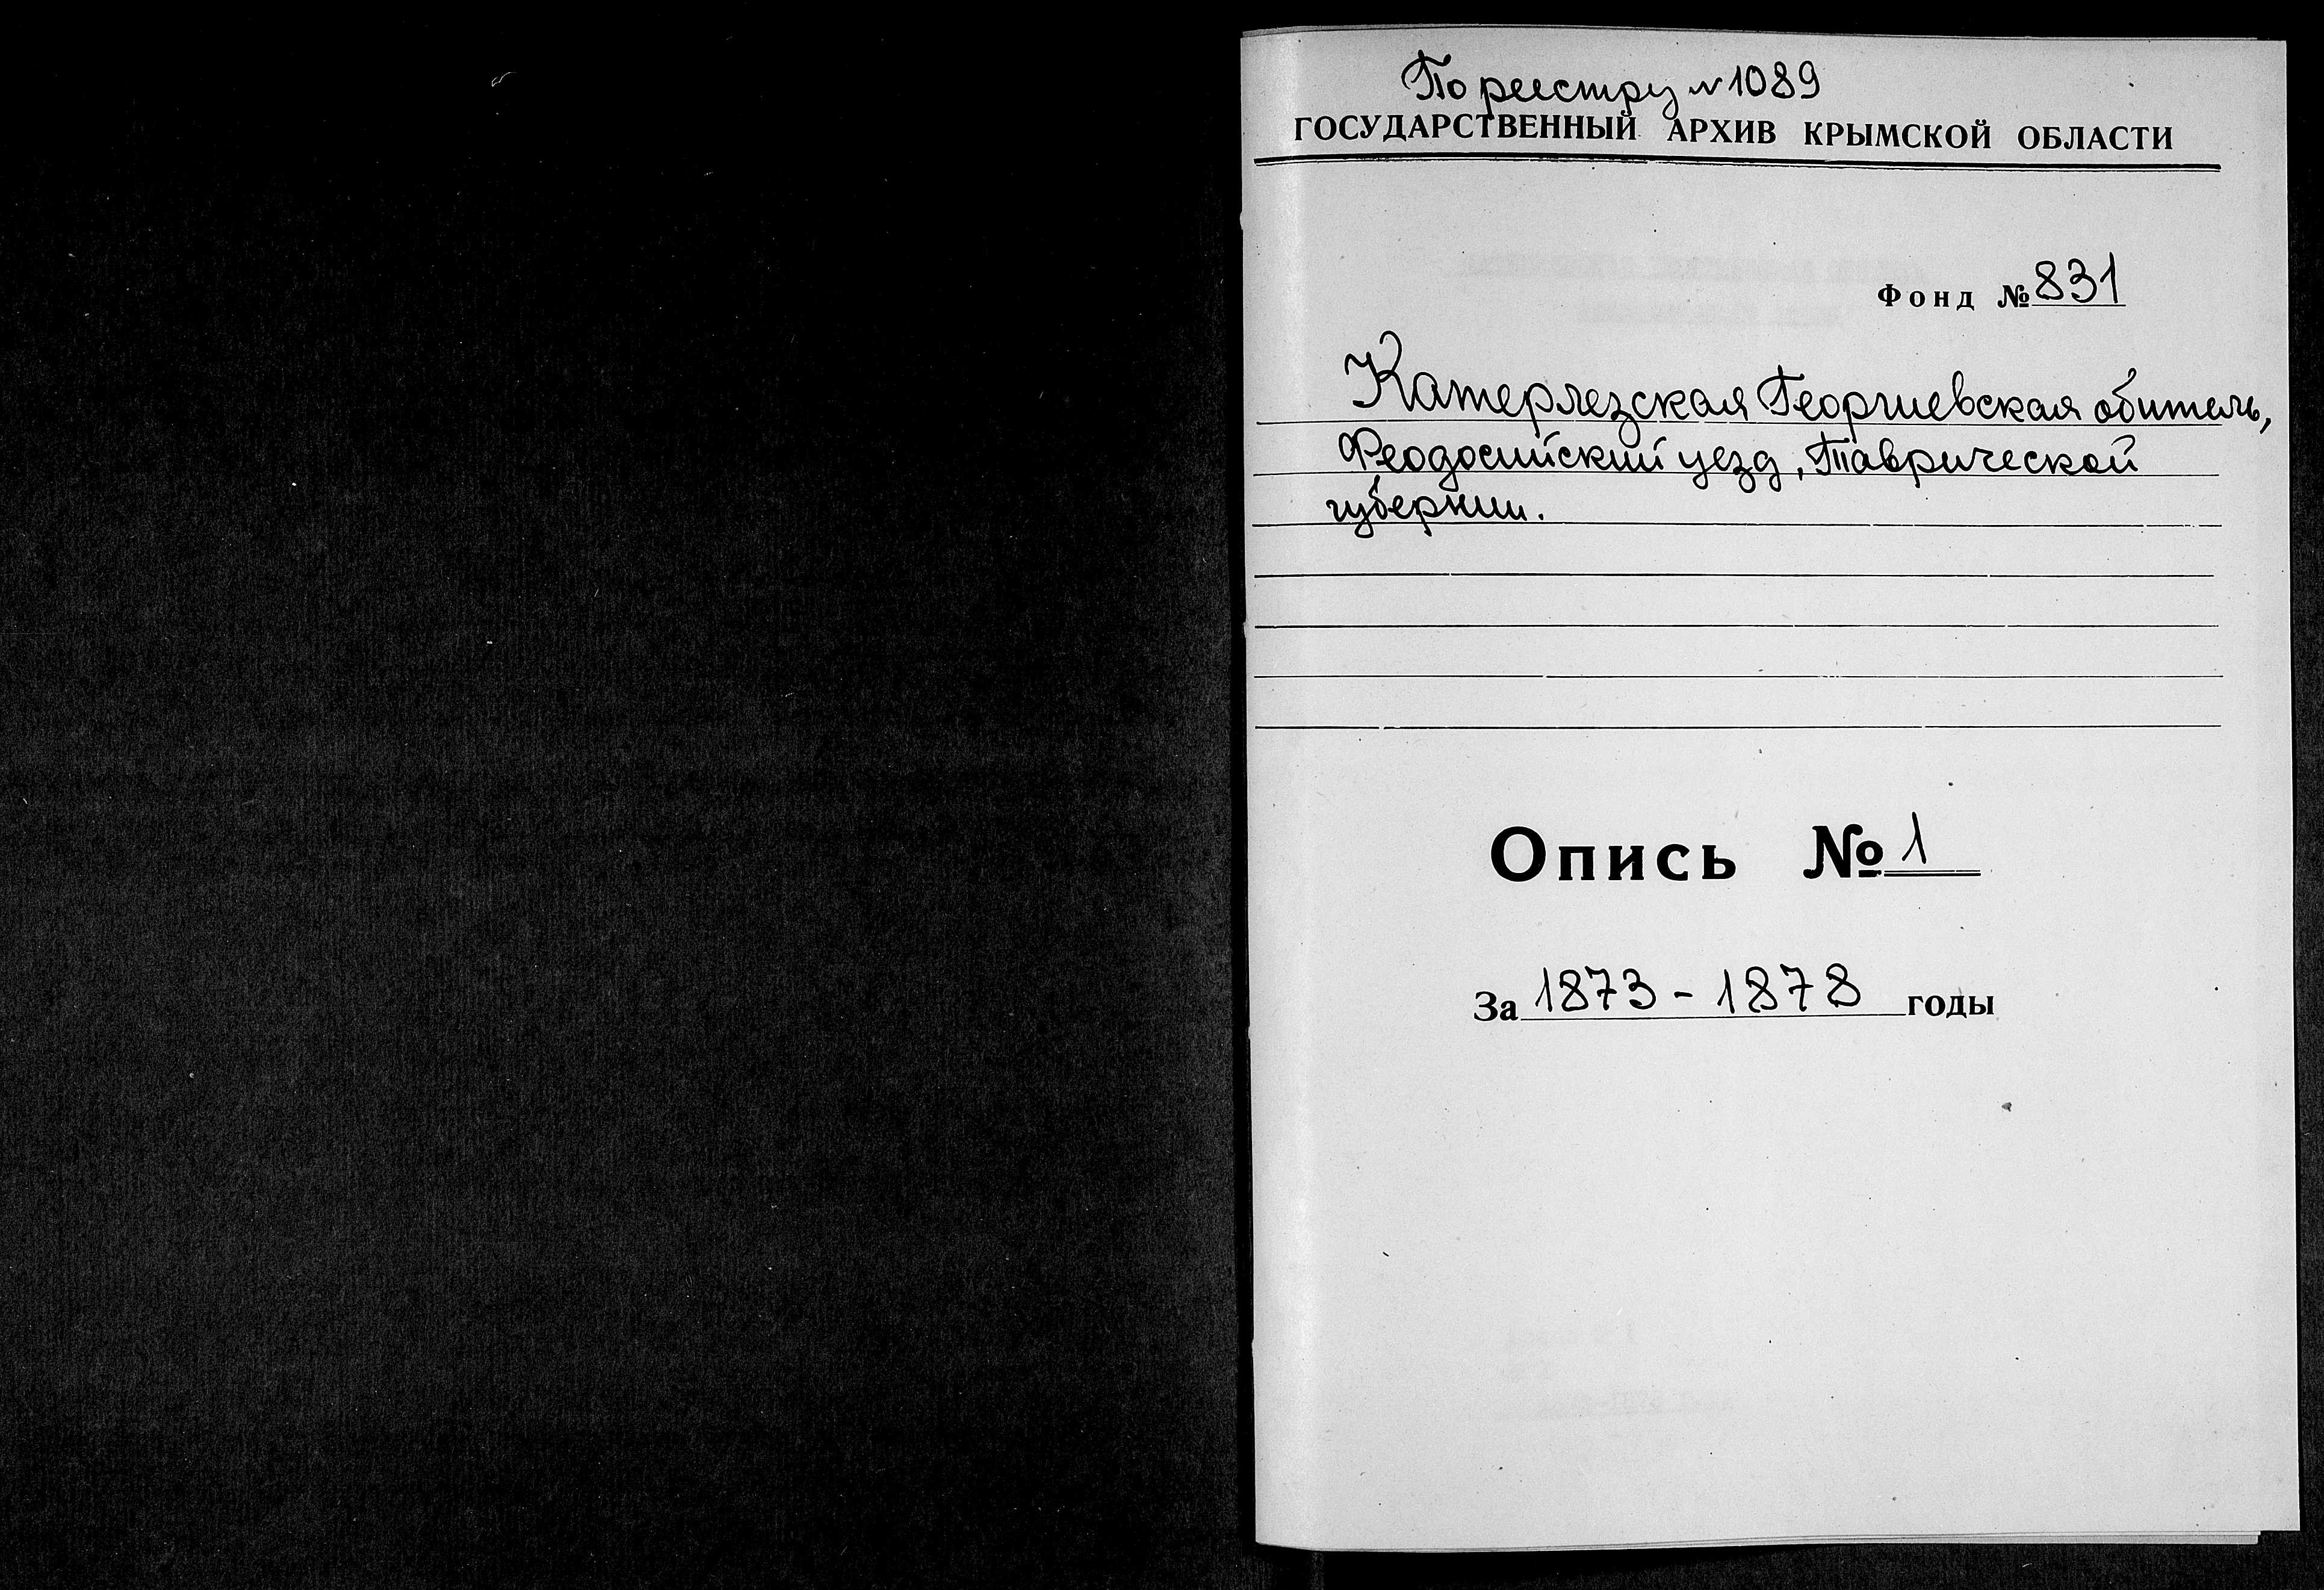 По реестру № 1089
ГОСУДАРСТВЕННЫЙ АРХИВ КРЫМСКОЙ ОБЛАСТИ
Фонд № 831
Катерлезская Георгиевская обитель,
Феодосийский уезд, Таврической
губернии.
Опись № 1
За 1873 - 1878 годы